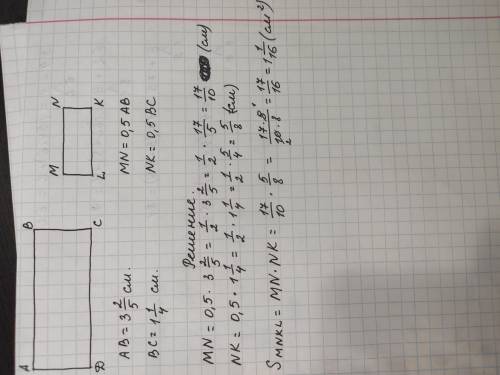 A B
D C
M N
L K
AB = 3 2/5 см.
BC = 1 1/4 см.
MN = 0,5 AB
NK = 0,5 BC
Решение.
MN = 0,5 · 3 2/5 = 1/2 · 3 2/5 = 1/2 · 17/5 = 17/10 (см)
NK = 0,5 · 1 1/4 = 1/2 · 1 1/4 = 1/2 · 5/4 = 5/8 (см)
S MNKL = MN · NK = 17/10 · 5/8 = 17·8 1/10·8 2 = 17/16 = 1 1/16 (см²)